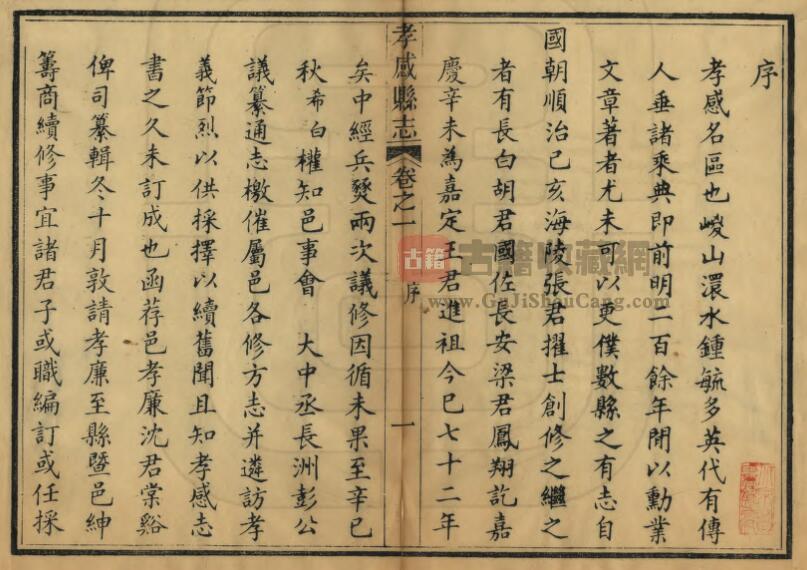 序
孝感名區也崚山澴水鍾毓多英代有傳
人垂諸乘典即前明二百餘年間以勳業
文章著者尤未可以更僕數縣之有志自
國朝順治己亥海陵張君擢士創修之繼之
者有長白胡君國佐長安梁君鳳翔訖嘉
慶辛未為嘉定王君進祖今已七十二年
孝感縣志 卷之一 序 一
矣中經兵燹兩次議修因循未果至辛巳
秋希白權知邑事會 大中丞長洲彭公
議纂通志檄催屬邑各修方志并遴訪孝
義節烈以供採擇以續舊聞且知孝感志
書之久未訂成也函荐邑孝廉沈君棠谿
俾司纂輯冬十月敦請孝廉至縣暨邑紳
籌商續修事宜諸君子或職編訂或任採
古籍
古籍收藏網
www.GuJiShouCang.com